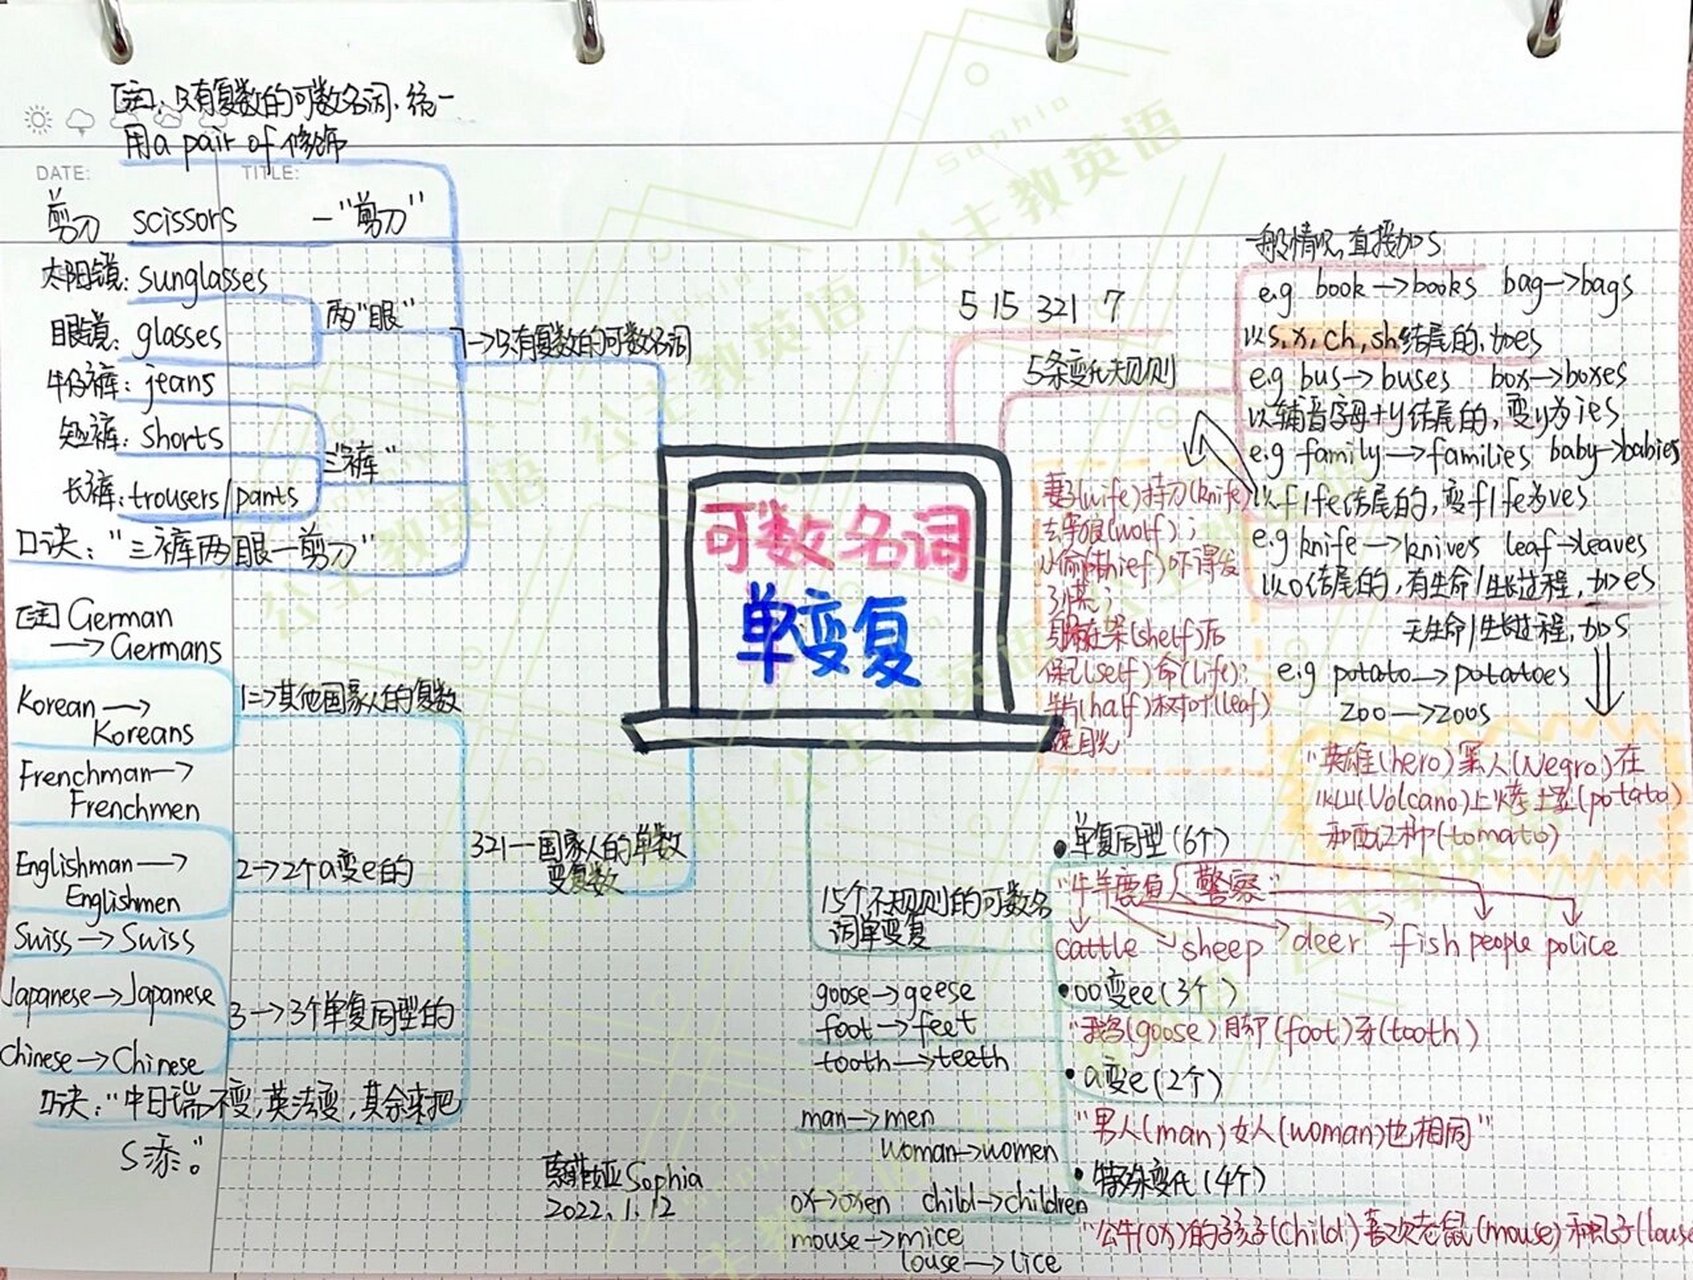 [注]：只有复数的可数名词，统一
用a pair of 修饰
DATE:
TITLE:
剪刀 scissors 一"剪刀"
太阳镜：sunglasses
眼镜：glasses
两"眼"
牛仔裤：jeans
短裤：shorts
长裤：trousers/pants
三"裤"
口诀："三裤两眼一剪刀"
7→只有复数的可数名词
[注] German
→Germans
Korean→
Koreans
1=>其他国家人的复数
Frenchman→
Frenchmen
Englishman→
Englishmen
2→2个a变e的
Swiss→Swiss
Japanese→Japanese
Chinese→Chinese
3→3个单复同型的
口诀："中日瑞不变，英法变，其余来把
S添。"
321—国家人的单数
变复数
可数名词
单变复
5 15 321 7
5条变化规则
一般情况，直接加s
e.g book→books bag→bags
以s,x,ch,sh结尾的，加es
e.g bus→buses box→boxes
以辅音字母+y结尾的，变y为ies
e.g family→families baby→babies
以f/fe结尾的，变f/fe为ves
e.g knife→knives leaf→leaves
以o结尾的，有生命/生长过程，加es
无生命/生长过程，加s
e.g potato→potatoes
zoo→zoos
妻子(wife)持刀(knife)
去宰狼(wolf)；
小偷(thief)吓得发
了慌；
躲在架(shelf)后
保己(self)命(life)；
半片(half)树叶(leaf)
遮目光
"英雄(hero)黑人(Negro)在
火山(Volcano)上烤土豆(potato)
和西红柿(tomato)
15个不规则的可数名
词单变复
单复同型(6个)
"牛羊鹿鱼人警察"
cattle sheep deer fish people police
goose→geese
foot→feet
tooth→teeth
oo变ee(3个)
"鹅(goose)脚(foot)牙(tooth)
man→men
woman→women
a变e(2个)
"男人(man)女人(woman)也相同"
ox→oxen child→children
mouse→mice
louse→lice
特殊变化(4个)
"公牛(ox)的孩子(child)喜欢老鼠(mouse)和虱子(louse
索菲娅Sophia
2022.1.12
公主教英语
Sophia